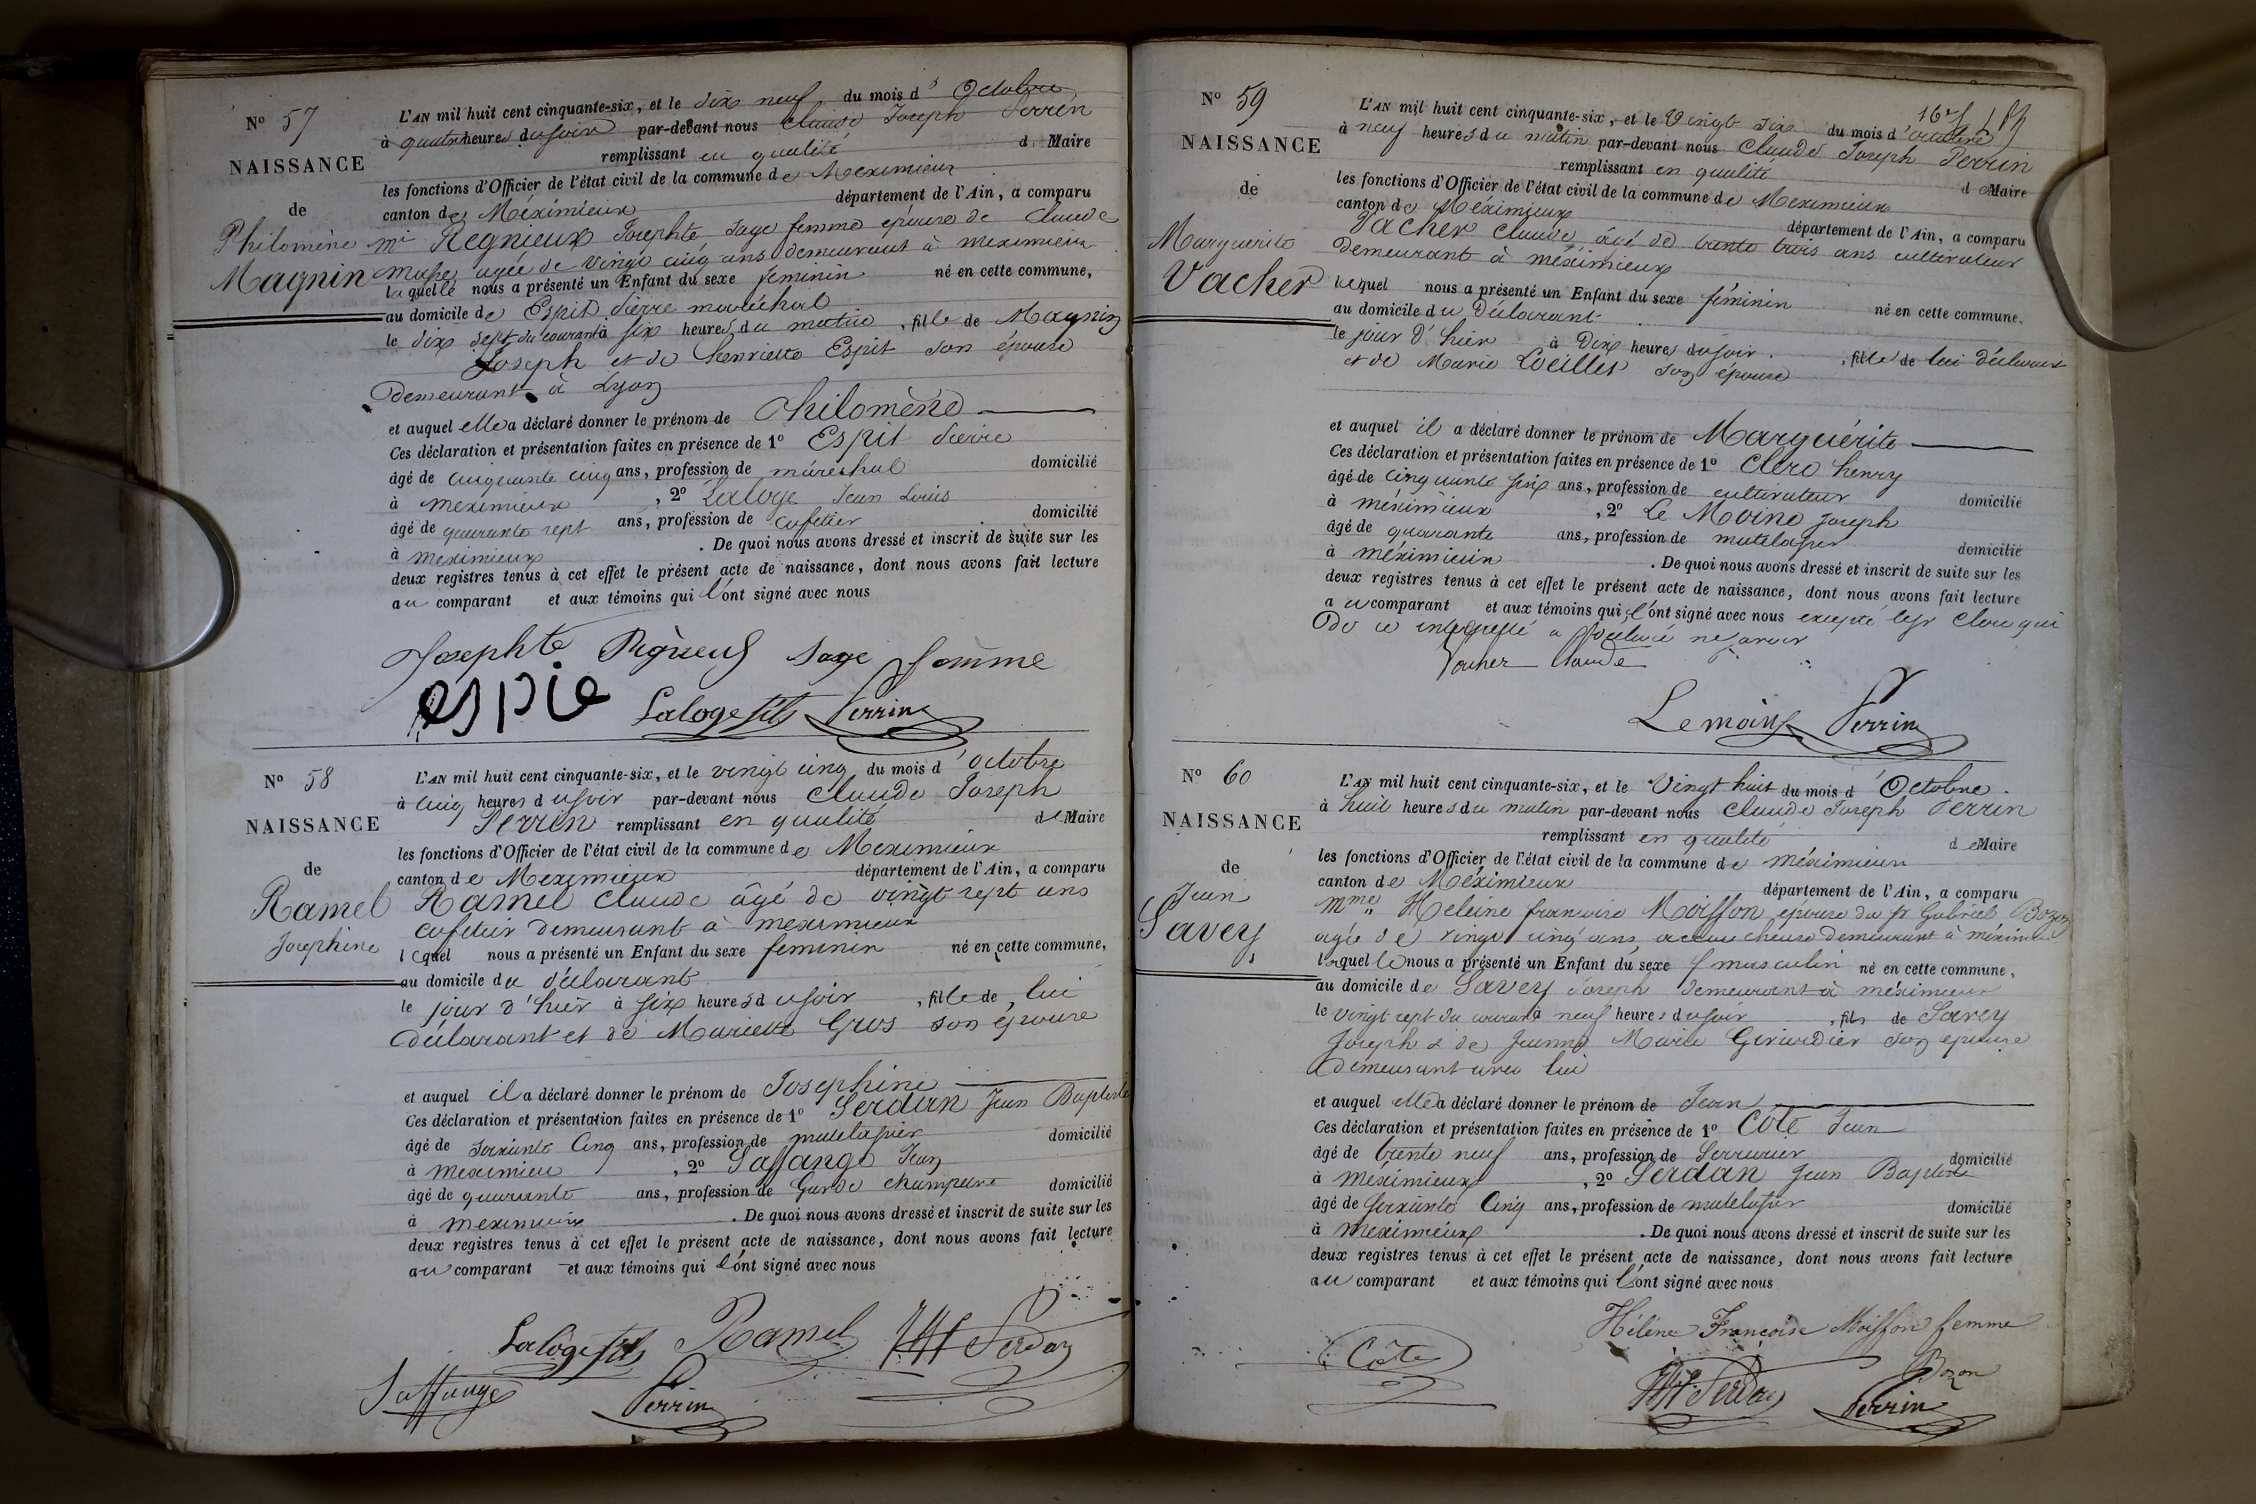 N° 57
NAISSANCE
de
Philomène
Magnin
L'AN mil huit cent cinquante-six, et le dix neuf du mois d' Octobre
à quatre heures du soir par-devant nous Claude Joseph Perrin
remplissant en qualité de Maire
les fonctions d'Officier de l'état civil de la commune de Meximieux
canton de Méximieux département de l'Ain, a comparu
Regnieux Josephte sage femme épouse de Claude
agée de vingt cinq ans demeurant à meximieux
laquelle nous a présenté un Enfant du sexe féminin né en cette commune,
au domicile de Espit Pierre maréchal
le dix sept du courant à six heures du matin, fille de Magnin
Joseph et de henriette Espit son épouse
demeurant à Lyon
et auquel elle a déclaré donner le prénom de Philomène
Ces déclaration et présentation faites en présence de 1° Espit Pierre
âgé de cinquante cinq ans, profession de maréchal domicilié
à meximieux, 2° Laloge Jean Louis
âgé de quarante sept ans, profession de cafetier domicilié
à meximieux. De quoi nous avons dressé et inscrit de suite sur les
deux registres tenus à cet effet le présent acte de naissance, dont nous avons fait lecture
au comparant et aux témoins qui l'ont signé avec nous
Josephte Règneux sage famme
espie Laloge fils Perrin
N° 58
NAISSANCE
de
Ramel
Josephine
L'AN mil huit cent cinquante-six, et le vingt cinq du mois d' octobre
à cinq heures du soir par-devant nous Claude Joseph
Perrin remplissant en qualité de Maire
les fonctions d'Officier de l'état civil de la commune de Meximieux
canton de Meximieux département de l'Ain, a comparu
Ramel Claude âgé de vingt sept ans
cafetier demeurant à meximieux
lequel nous a présenté un Enfant du sexe feminin né en cette commune,
au domicile du déclarant
le jour d'hier à six heures du soir, fille de lui
déclarant et de Mariette Gros son épouse
et auquel il a déclaré donner le prénom de Josephine
Ces déclaration et présentation faites en présence de 1° Serdan Jean Baptiste
âgé de soixante Cinq ans, profession de matelassier domicilié
à meximieu, 2° Saffange Jean
âgé de quarante ans, profession de Garde champetre domicilié
à meximieux. De quoi nous avons dressé et inscrit de suite sur les
deux registres tenus à cet effet le présent acte de naissance, dont nous avons fait lecture
au comparant et aux témoins qui l'ont signé avec nous
Laloge fils Ramel Serdan
Saffange Perrin
N° 59
NAISSANCE
de
Marguerite
Vacher
L'AN mil huit cent cinquante-six, et le Vingt six du mois d' octobre
à neuf heures du matin par-devant nous Claude Joseph Perrin
remplissant en qualité de Maire
les fonctions d'Officier de l'état civil de la commune de Meximieux
canton de Méximieux département de l'Ain, a comparu
Vacher Claude âgé de trente trois ans cultivateur
demeurant à méximieux
lequel nous a présenté un Enfant du sexe féminin né en cette commune,
au domicile du déclarant
le jour d'hier à Dix heures du soir, fille de lui déclarant
et de Marie Loeillet son épouse
et auquel il a déclaré donner le prénom de Marguérite
Ces déclaration et présentation faites en présence de 1° Clerc henry
âgé de cinquante six ans, profession de cultivateur domicilié
à méximieux, 2° Le Moine Joseph
âgé de quarante ans, profession de matelassier domicilié
à méximieux. De quoi nous avons dressé et inscrit de suite sur les
deux registres tenus à cet effet le présent acte de naissance, dont nous avons fait lecture
au comparant et aux témoins qui l'ont signé avec nous excepté le sr Clerc qui
de ce interpellé a déclaré ne savoir
Vacher Claude
Lemoine Perrin
N° 60
NAISSANCE
de
Jean
Savey
L'AN mil huit cent cinquante-six, et le Vingt huit du mois d' Octobre
à huit heures du matin par-devant nous Claude Joseph Perrin
remplissant en qualité de Maire
les fonctions d'Officier de l'état civil de la commune de méximieux
canton de Méximieux département de l'Ain, a comparu
Mme Heleine francoise Moisson épouse du sr Gabriel Bozon
agée de vingt cinq ans accoucheuse demeurant à méximieux
laquelle nous a présenté un Enfant du sexe masculin né en cette commune,
au domicile de Savey Joseph demeurant à méximieux
le vingt sept du courant à neuf heures du soir, fils de Savey
Joseph & de Jeanne Marie Girardier son épouse
demeurant avec lui
et auquel elle a déclaré donner le prénom de Jean
Ces déclaration et présentation faites en présence de 1° Côte Jean
âgé de trente neuf ans, profession de Serrurier domicilié
à Méximieux, 2° Serdan Jean Baptiste
âgé de soixante Cinq ans, profession de matelassier domicilié
à Meximieux. De quoi nous avons dressé et inscrit de suite sur les
deux registres tenus à cet effet le présent acte de naissance, dont nous avons fait lecture
au comparant et aux témoins qui l'ont signé avec nous
Hélène Françoise Moisson femme
Côte Bozon
Serdan Perrin